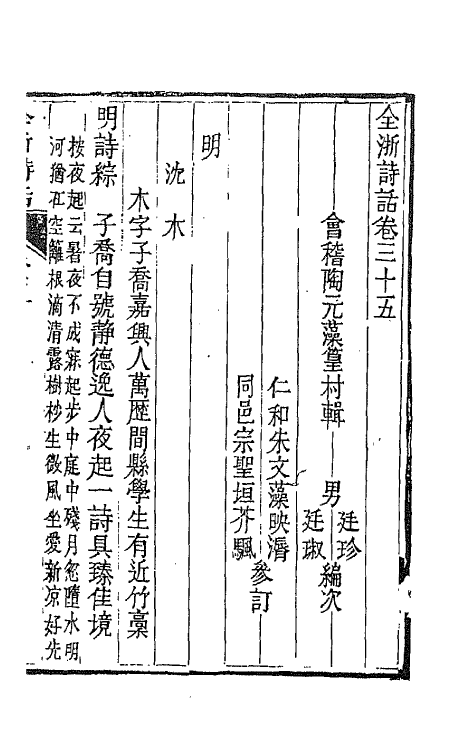 全浙詩話卷三十五
會稽陶元藻篁村輯　男廷珍廷珹編次
仁和朱文藻映漘
同邑宗聖垣芥颿參訂
明
沈木
木字子喬嘉興人萬歷間縣學生有近竹稾
明詩綜　子喬自號静德逸人夜起一詩具臻佳境
按夜起云暑夜不成寐起步中庭中殘月忽墮水明
河猶在空籬根滴清露樹杪生微風坐愛新凉好先
全浙詩話